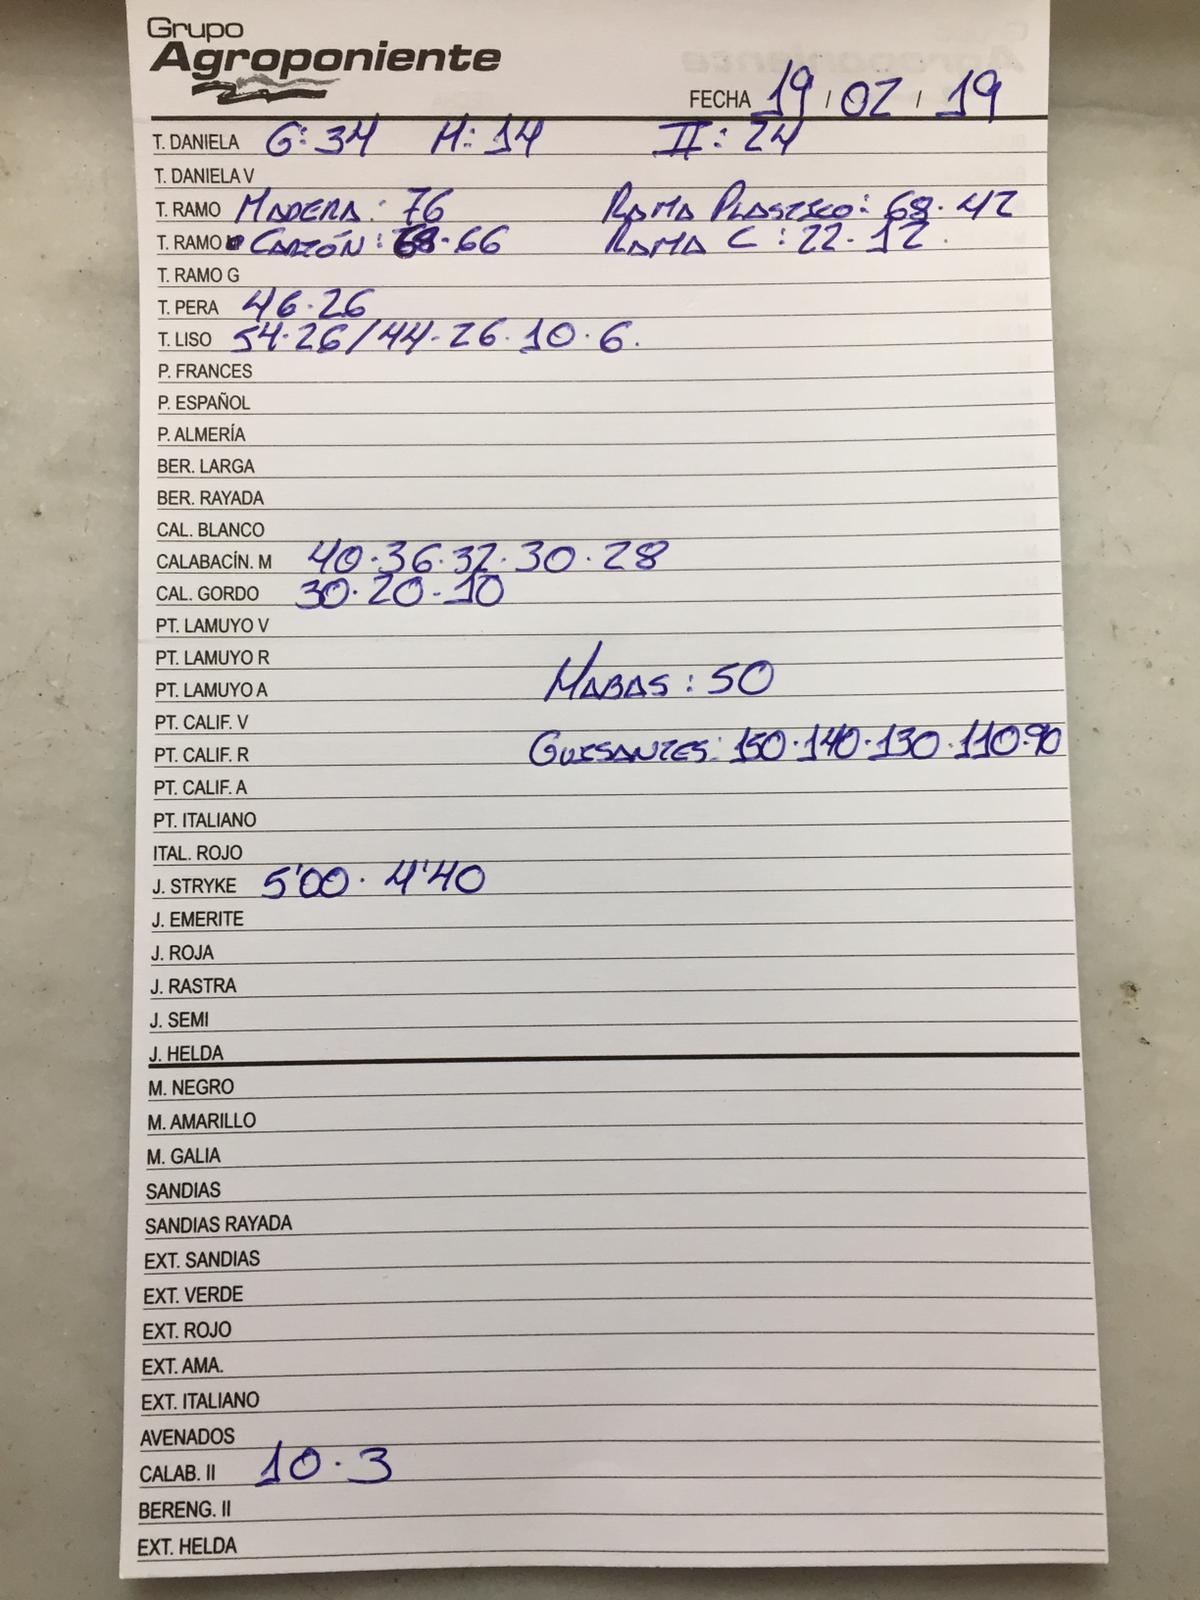 Grupo
Agroponiente
FECHA 19 / 02 / 19
T. DANIELA G: 34 M: 14 II: 24
T. DANELA V
T. RAMO MADERA: 76 RAMA PLASTICO: 68·42
T. RAMO CARTÓN: 68·66 RAMA C: 22·12.
T. RAMO G
T. PERA 46·26
T. LISO 54·26/44·26·10·6.
P. FRANCES
P. ESPAÑOL
P. ALMERÍA
BER. LARGA
BER. RAYADA
CAL. BLANCO
CALABACÍN. M 40·36·32·30·28
CAL. GORDO 30·20·10
PT. LAMUYO V
PT. LAMUYO R
PT. LAMUYO A HABAS: 50
PT. CALIF. V
PT. CALIF. R GUISANTES: 150·140·130·110·90
PT. CALIF. A
PT. ITALIANO
ITAL. ROJO
J. STRYKE 5'00· 4'40
J. EMERITE
J. ROJA
J. RASTRA
J. SEMI
J. HELDA
M. NEGRO
M. AMARILLO
M. GALIA
SANDIAS
SANDIAS RAYADA
EXT. SANDIAS
EXT. VERDE
EXT. ROJO
EXT. AMA.
EXT. ITALIANO
AVENADOS
CALAB. II 10·3
BERENG. II
EXT. HELDA